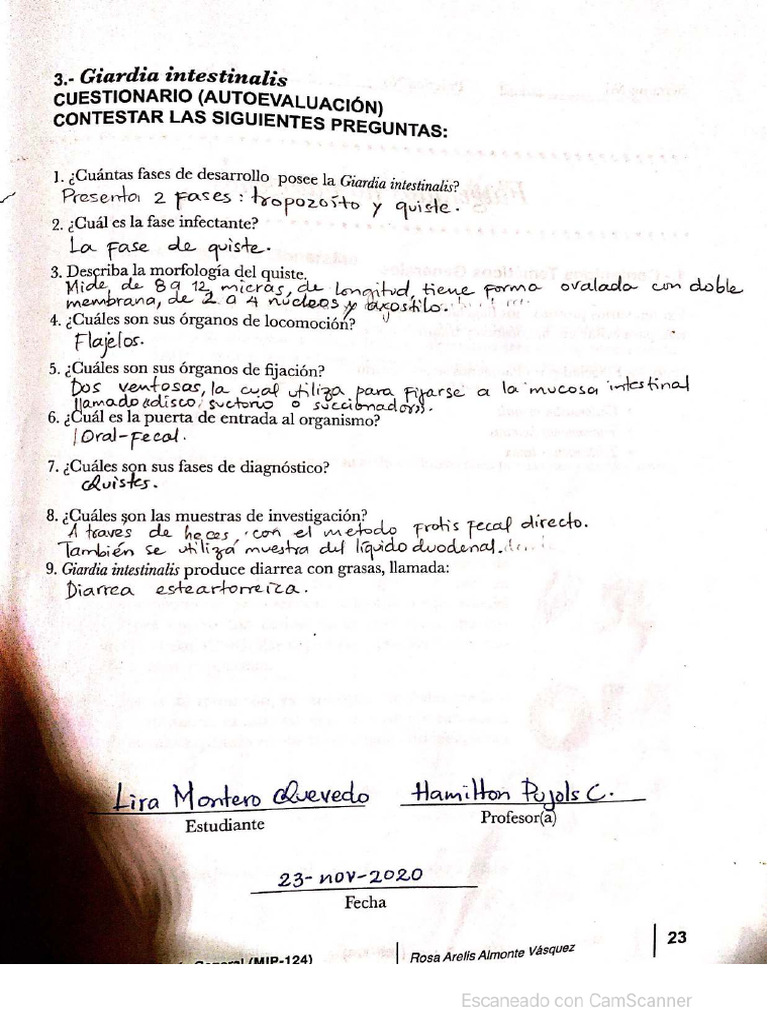 3.- Giardia intestinalis
CUESTIONARIO (AUTOEVALUACIÓN)
CONTESTAR LAS SIGUIENTES PREGUNTAS:
1. ¿Cuántas fases de desarrollo posee la Giardia intestinalis?
Presenta 2 fases: tropozoito y quiste.
2. ¿Cuál es la fase infectante?
La fase de quiste.
3. Describa la morfología del quiste.
Mide, de 8 a 12 micras, de longitud, tiene forma ovalada con doble
membrana, de 2 a 4 nucleos y axostilo.
4. ¿Cuáles son sus órganos de locomoción?
Flajelos.
5. ¿Cuáles son sus órganos de fijación?
Dos ventosas, la cual utiliza para fijarse a la mucosa intestinal
llamado disco, suctorio o succionador.
6. ¿Cuál es la puerta de entrada al organismo?
Oral-Fecal.
7. ¿Cuáles son sus fases de diagnóstico?
Quistes.
8. ¿Cuáles son las muestras de investigación?
A traves de heces, con el metodo frotis fecal directo.
También se utiliza muestra del líquido duodenal.
9. Giardia intestinalis produce diarrea con grasas, llamada:
Diarrea esteartorreica.
Lira Montero Quevedo Hamilton Pujols C.
Estudiante Profesor(a)
23-nov-2020
Fecha
(MIP-124) Rosa Arelis Almonte Vásquez 23
Escaneado con CamScanner